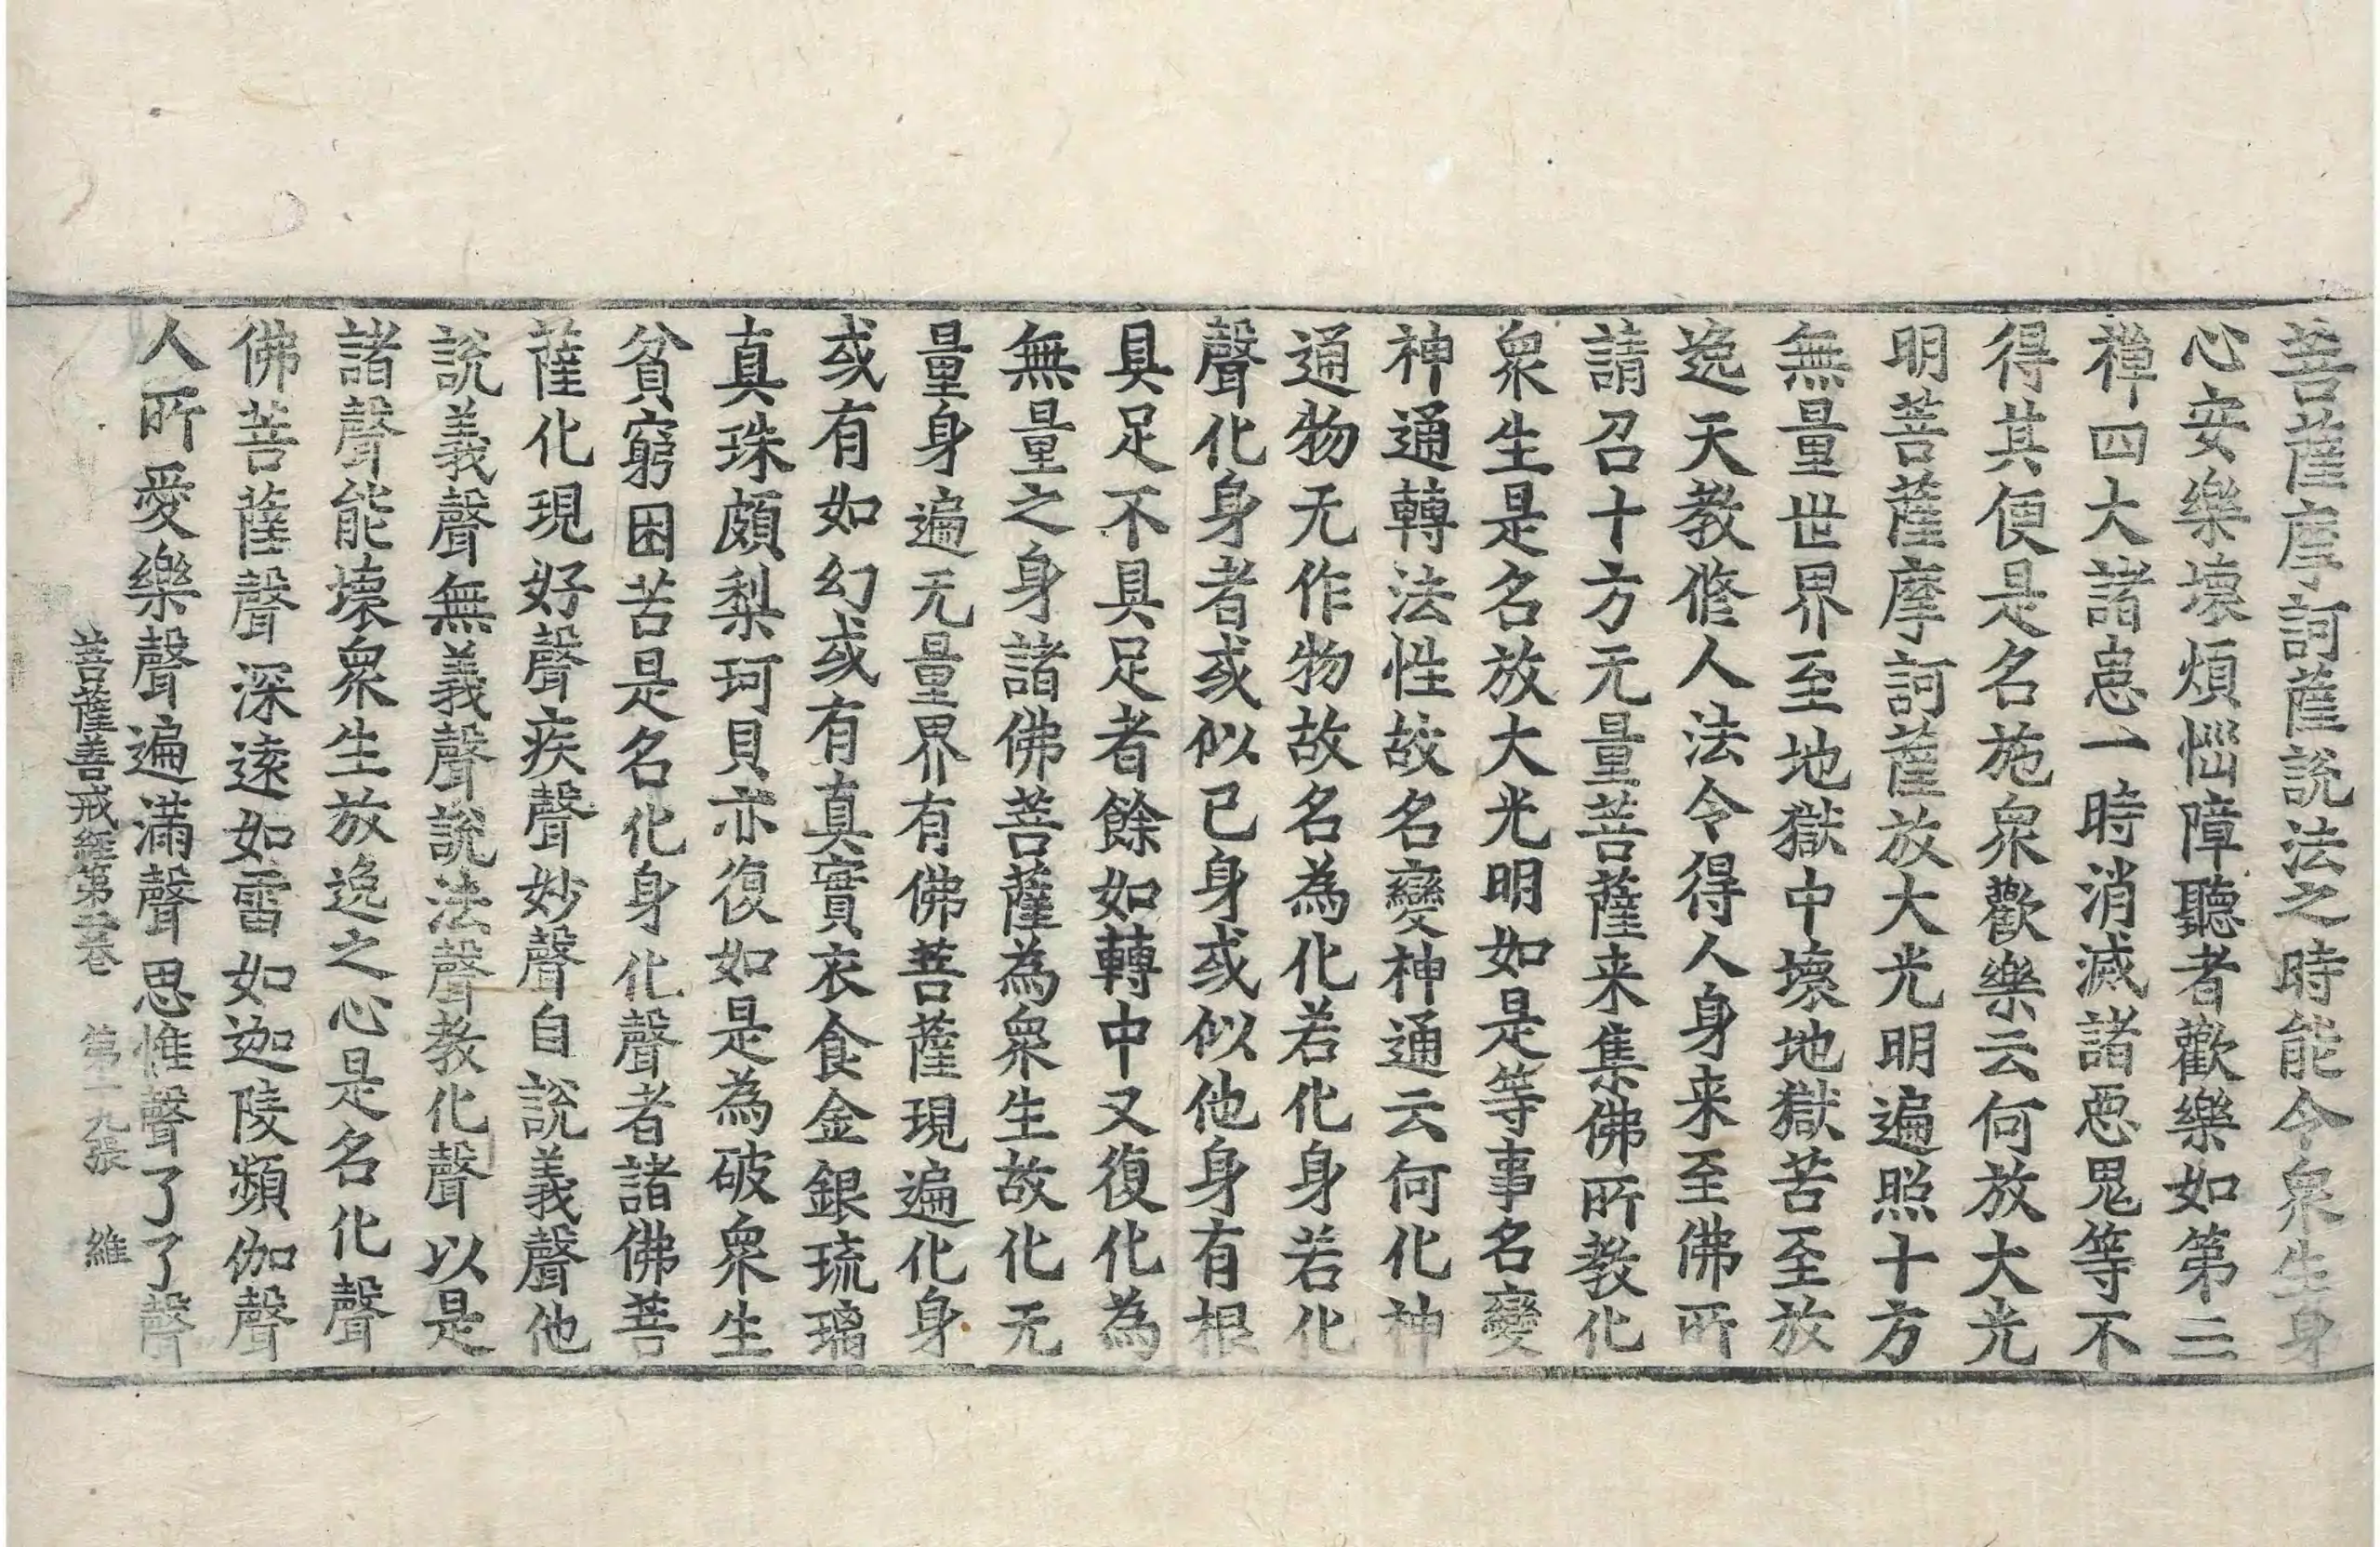 菩薩摩訶薩說法之時能令衆生身
心安樂壞煩惱障聽者歡樂如第三
禪四大諸患一時消滅諸惡鬼等不
得其便是名施衆歡樂云何放大光
明菩薩摩訶薩放大光明遍照十方
無量世界至地獄中壞地獄苦至放
逸天教脩人法令得人身来至佛所
請召十方无量菩薩来集佛所教化
衆生是名放大光明如是等事名變
神通轉法性故名變神通云何化神
通物无作物故名為化若化身若化
聲化身者或似己身或似他身有根
具足不具足者餘如轉中又復化為
無量之身諸佛菩薩為衆生故化无
量身遍无量界有佛菩薩現遍化身
或有如幻或有真實衣食金銀琉璃
真珠頗梨珂貝亦復如是為破衆生
貧窮困苦是名化身化聲者諸佛菩
薩化現好聲疾聲妙聲自說義聲他
說義聲無義聲說法聲教化聲以是
諸聲能壞衆生放逸之心是名化聲
佛菩薩聲深遠如雷如迦陵頻伽聲
人所愛樂聲遍滿聲思惟聲了了聲
菩薩善戒經第二卷　第十九張　維